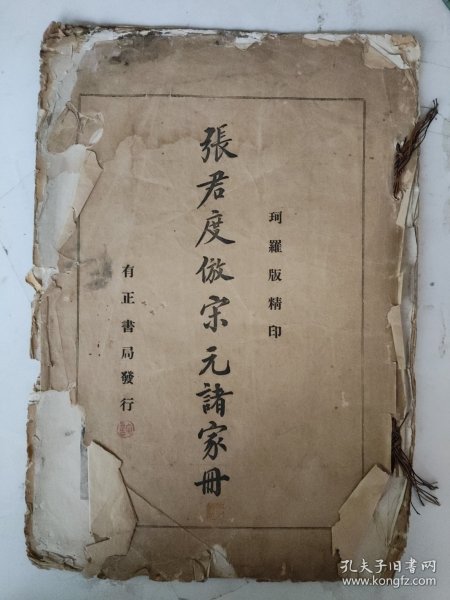 珂羅版精印
張君度倣宋元諸家冊
有正書局發行
孔夫子旧书网
www.kongfz.com